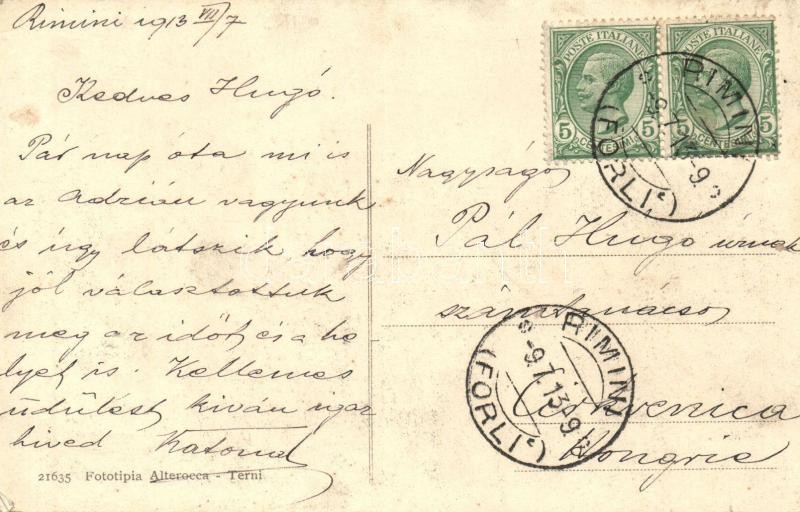 Rimini 1913 VII/7
Kedves Hugó.
Pár nap óta mi is
az Adrián vagyunk
és úgy látszik hogy
jól választottuk
meg az időt és a he-
lyet is. Kellemes
üdülést kíván igaz
híved Katona
21635 Fototipia Alterocca - Terni
POSTE ITALIANE
5 5
CENTES
POSTE ITALIANE
5 5
CENTES
RIMINI
(FORLÌ)
Nagyságos
Pál Hugó úrnak
számtanácsos
RIMINI
9.7.13.9
(FORLÌ)
Cirkvenica
Hongrie